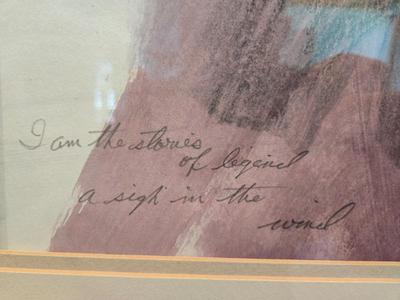 I am the stories
of legend
a sigh in the
wind